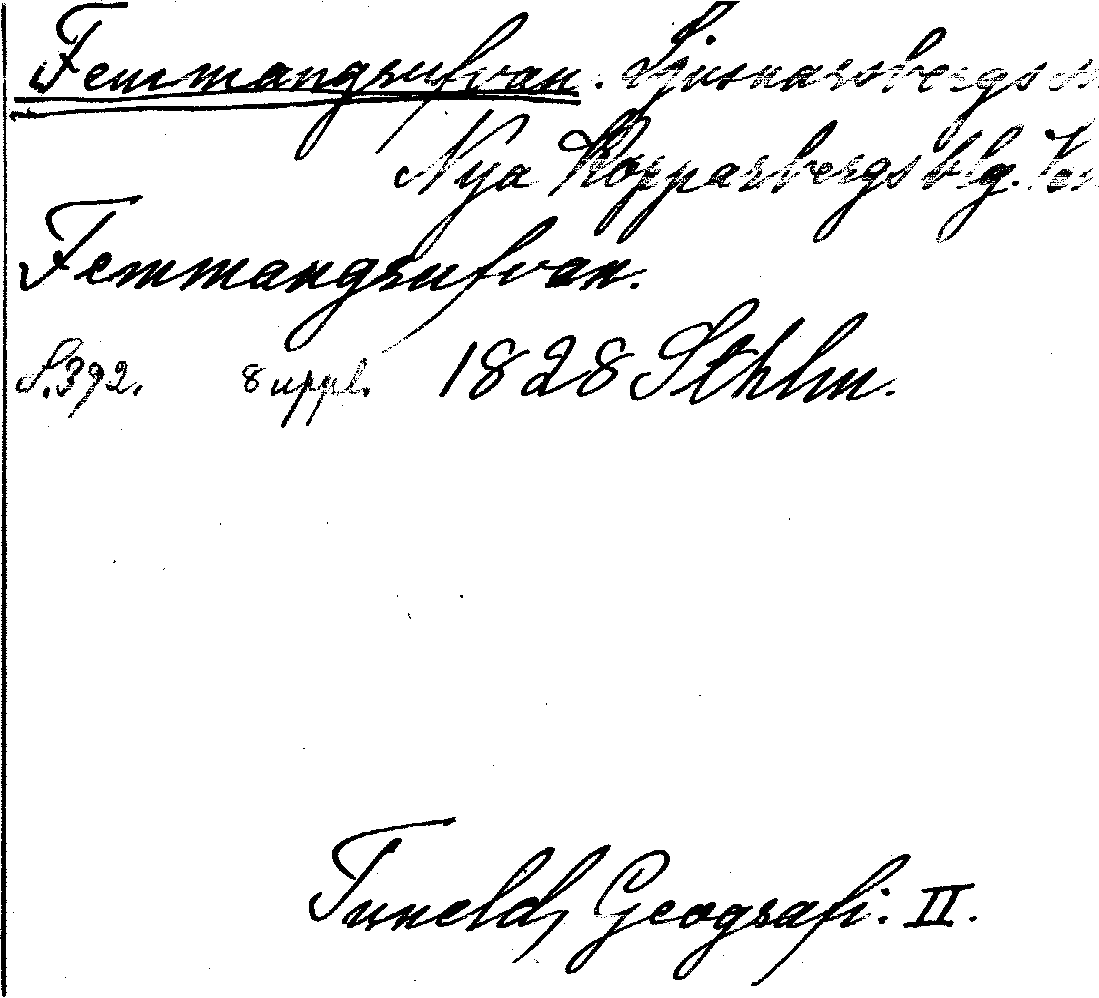 Femmangrufvan. Ljusnarsbergs
Nya Kopparbergs blg.
Femmangrufvan.
S. 392. 8 uppl. 1828 Sthlm.
Tuneld, Geografi. II.